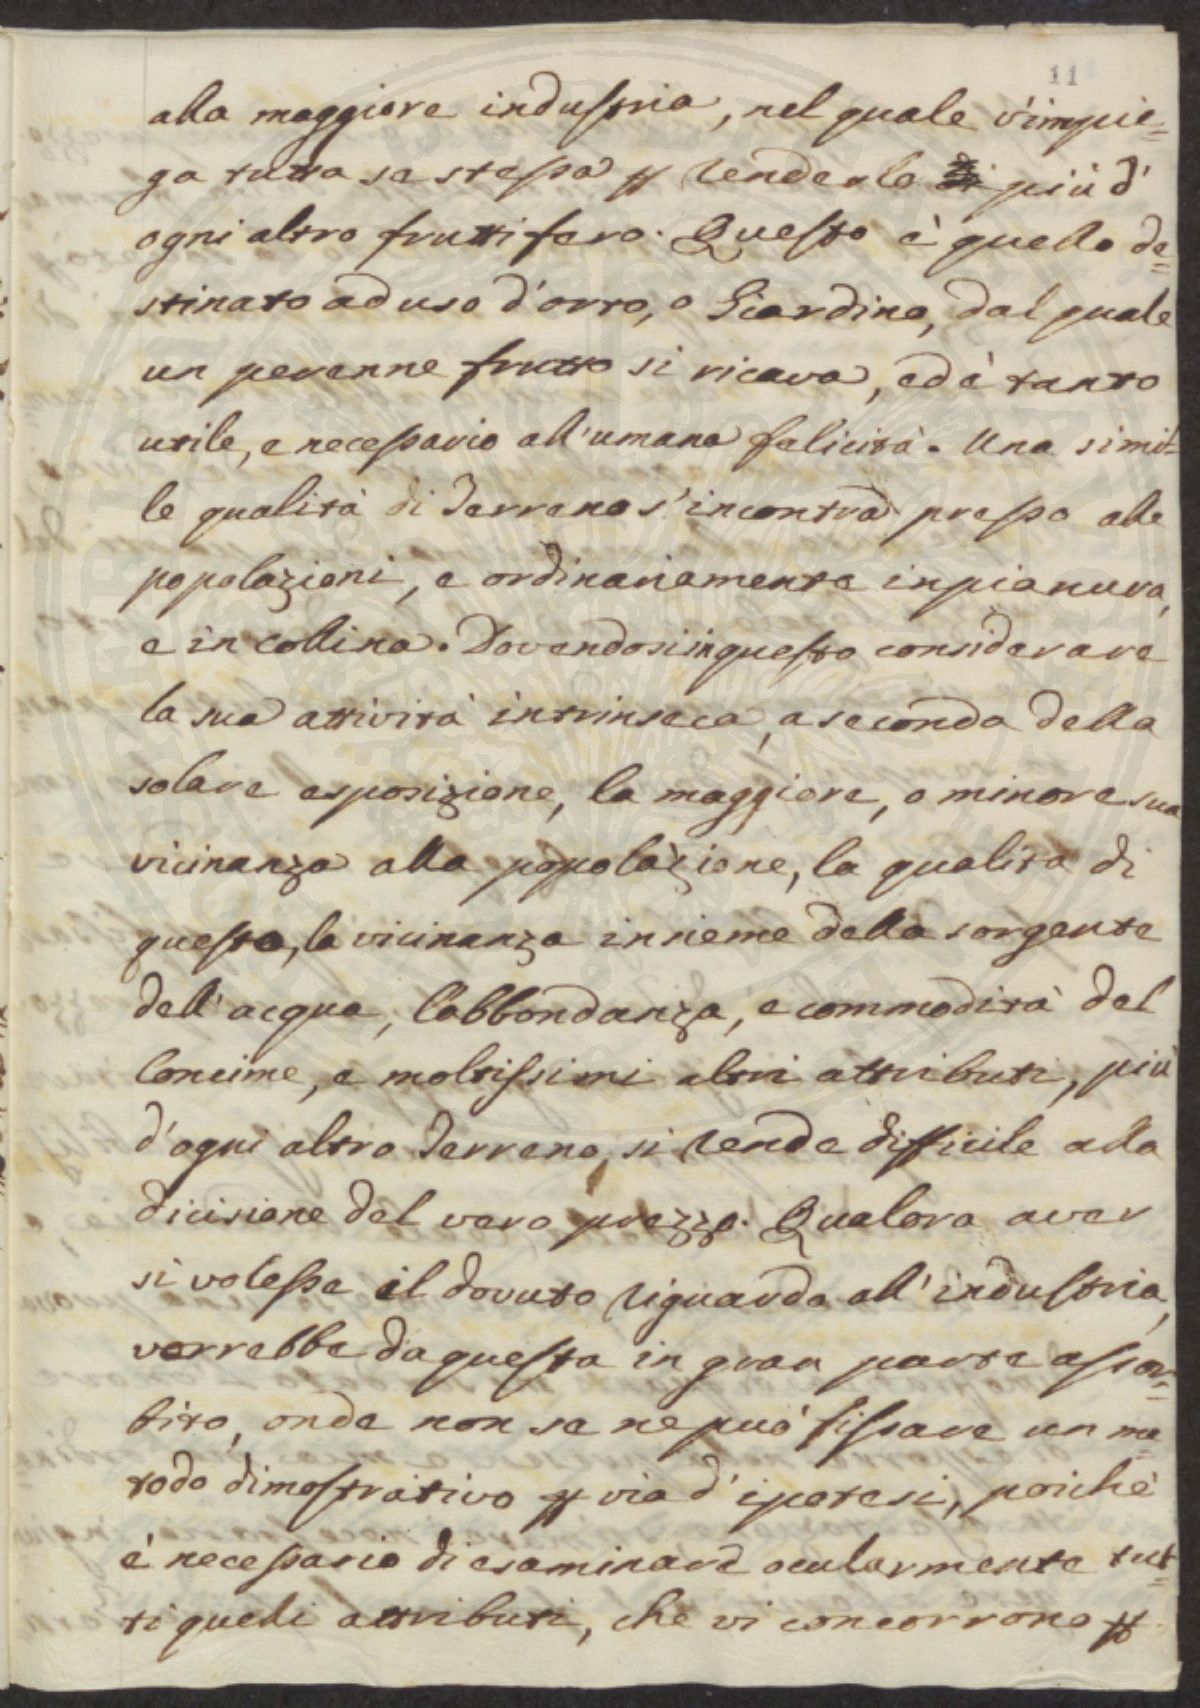 11
alla maggiore industria, nel quale v'impie=
ga tutta se stessa ꝑ renderlo più d'
ogni altro fruttifero. Questo è quello de=
stinato ad uso d'orto, o Giardino, dal quale
un perenne frutto si ricava, ed è tanto
utile, e necessario all'umana felicità. Una simi=
le qualità di Terreno s'incontra presso alle
popolazioni, e ordinariamente in pianura,
e in collina. Dovendosi in questo considerare
la sua attività intrinseca, a seconda della
solare esposizione, la maggiore, o minore sua
vicinanza alla popolazione, la qualità di
questa, la vicinanza insieme della sorgente
dell'acqua, l'abbondanza, e commodità del
Concime, e moltissimi altri attributi, più
d'ogni altro Terreno, si rende difficile alla
dicisione del vero prezzo. Qualora aver
si volesse il dovuto riguardo all'industria,
verrebbe da questa in gran parte assor=
bito, onde non se ne può fissare un me=
todo dimostrativo ꝑ via d'ipotesi, poichè
è necessario di esaminare ocularmente tut=
ti quelli attributi, che vi concorrono ꝑ